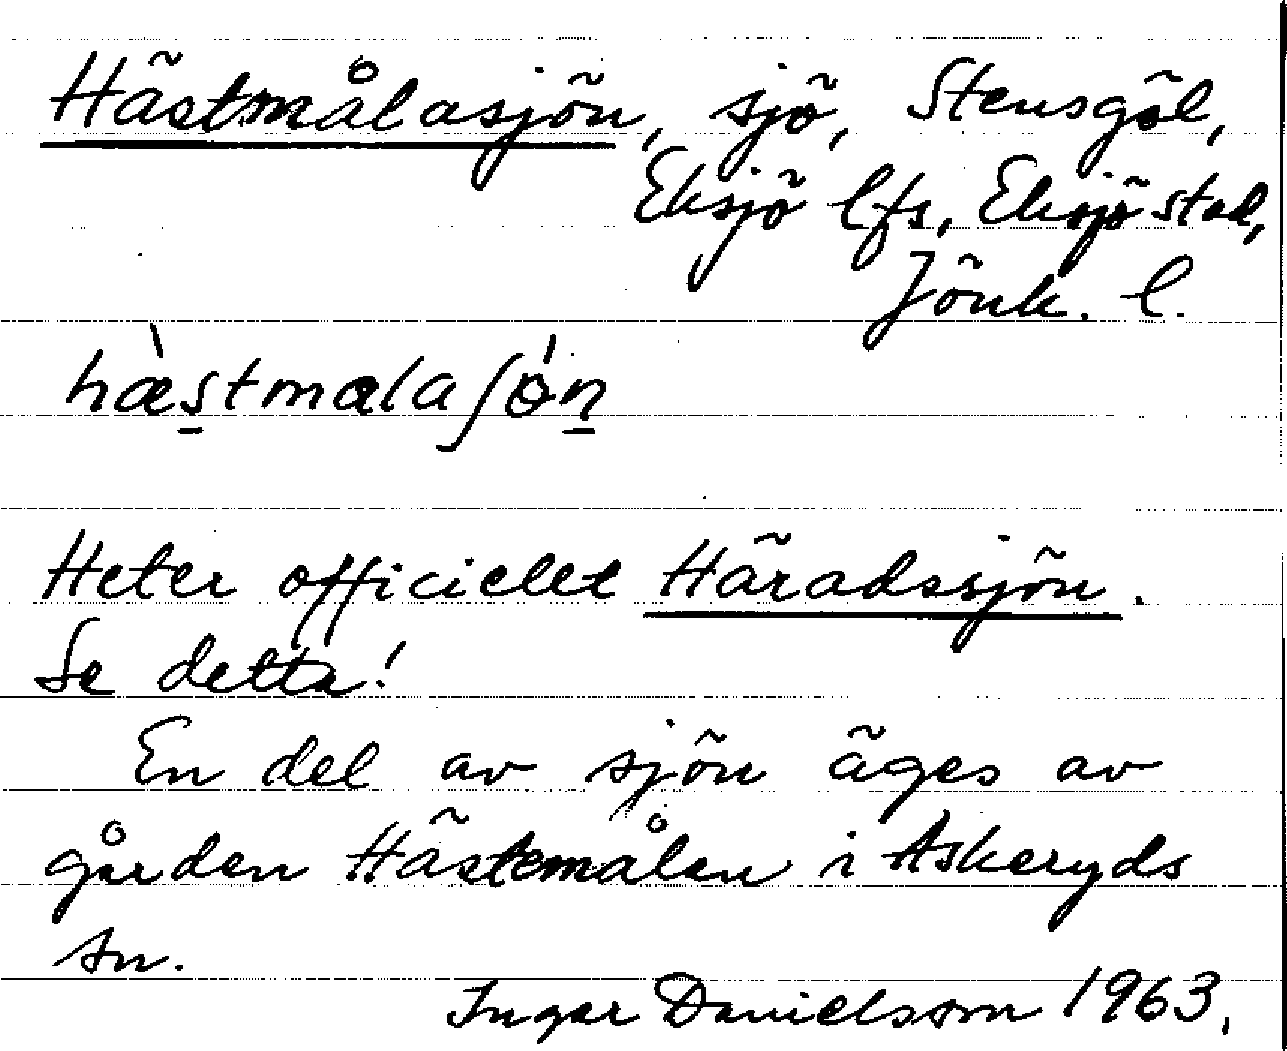 Hästmålasjön, sjö, Stensgöl,
Eksjö lfs, Eksjö stad,
Jönk. l.
hæ̀s̲tmalaʃǿn̲
Heter officiellt Häradssjön.
Se detta!
En del av sjön äges av
gården Hästemålen i Askeryds
sn.
Ingar Danielsson 1963.